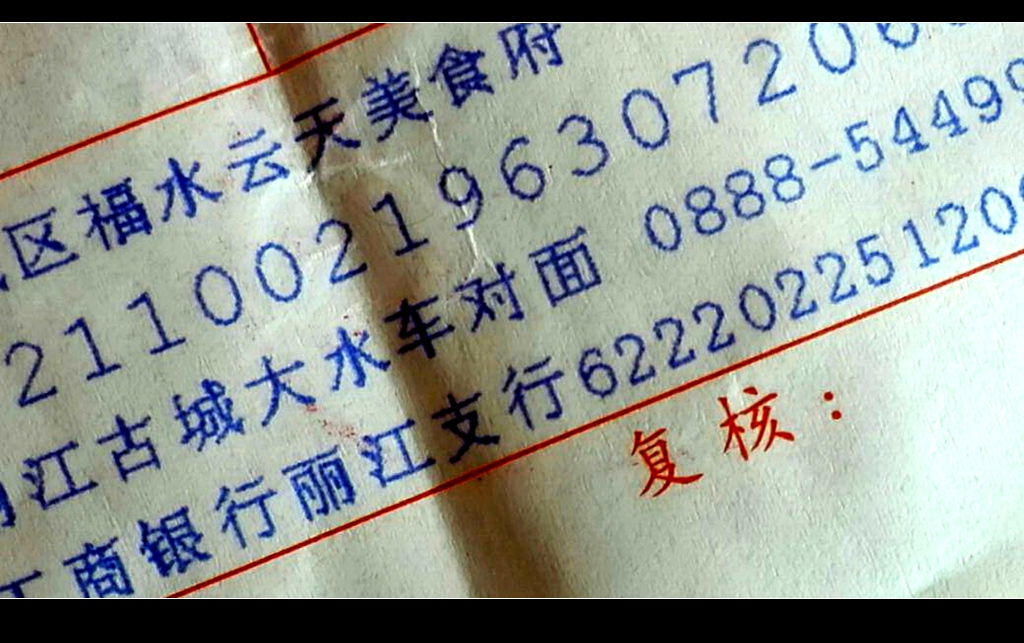 区福水云天美食府
21100219630720
江古城大水车对面 0888-5449
工商银行丽江支行62220225120
复核：